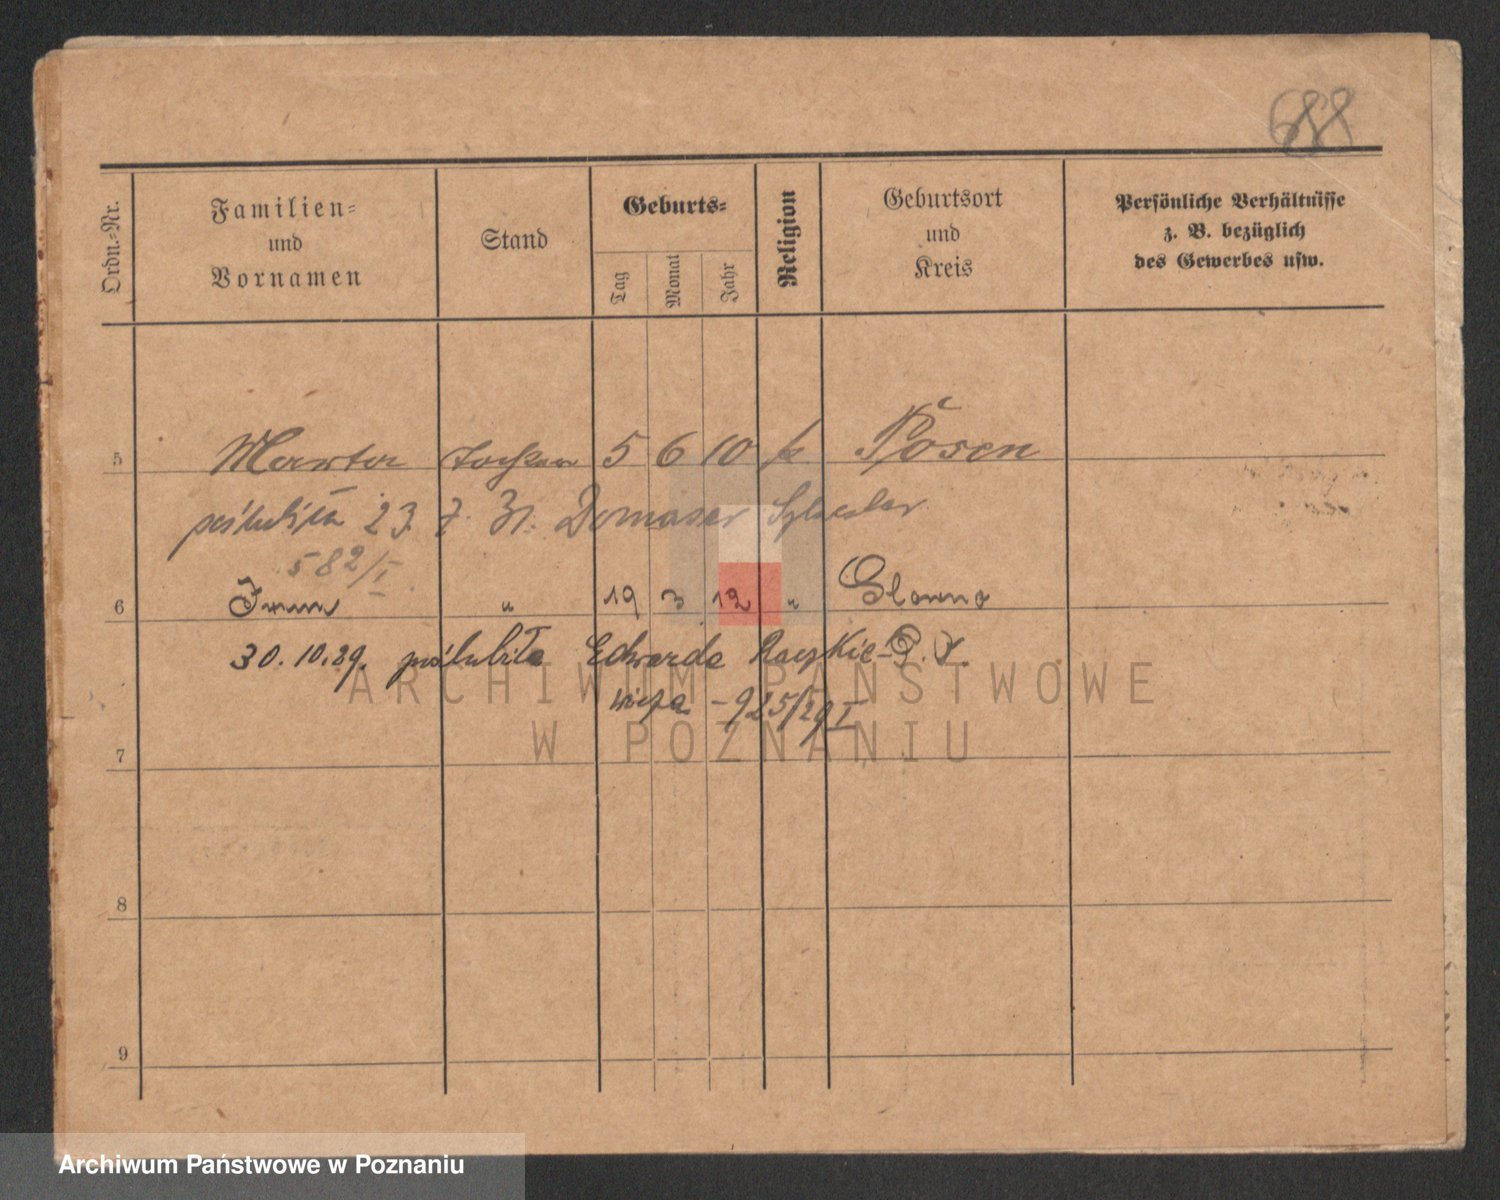 688
Ordn.=Nr.
Familien=
und
Vornamen
Stand
Geburts=
Tag
Monat
Jahr
Religion
Geburtsort
und
Kreis
Persönliche Verhältnisse
z. B. bezüglich
des Gewerbes usw.
5 Marta 5 6 10 k Posen
poślubiła 23. 7. 31.
582/I
6 " 19 3 12 "
30.10.29. poślubiła Edwarda
925/29 I
7
8
9
ARCHIWUM PAŃSTWOWE
W POZNANIU
Archiwum Państwowe w Poznaniu